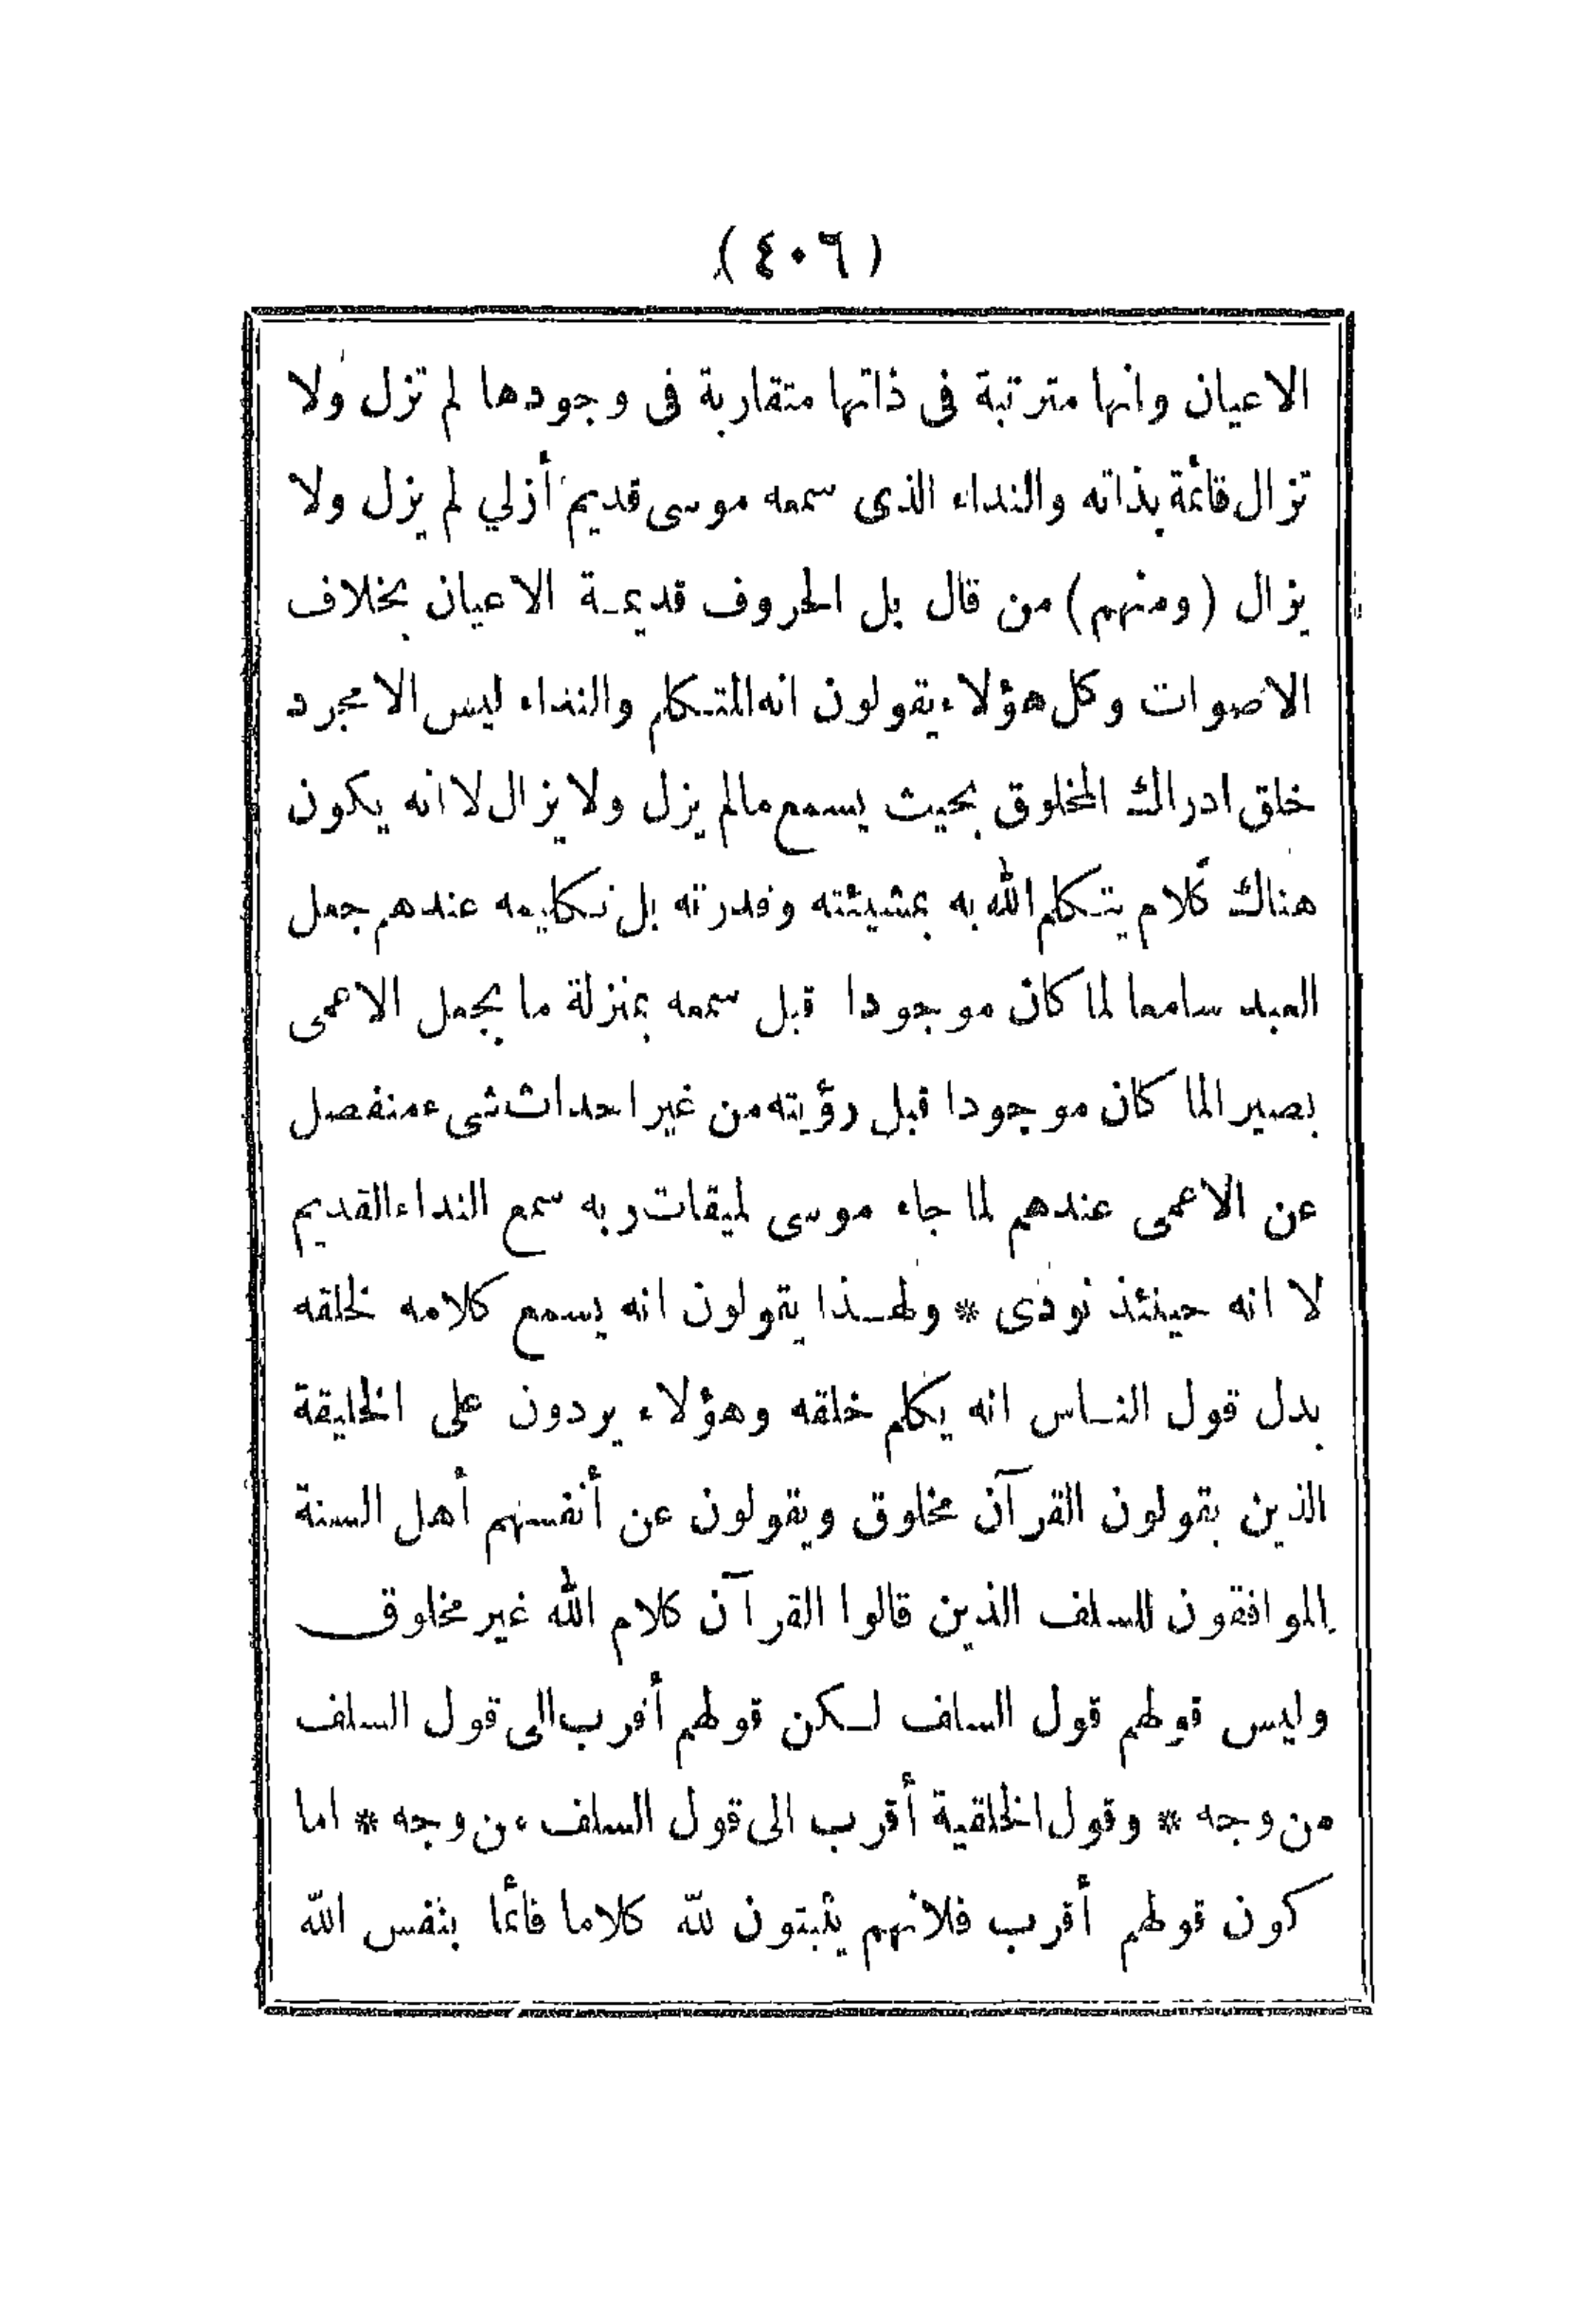 (٤٠٦)
الاعيان وانها مترتبة فى ذاتها متقاربة فى وجودها لم تزل ولا
تزال قائمة بذاته والنداء الذى سمعه موسى قديم أزلي لم يزل ولا
يزال (ومنهم) من قال بل الحروف قديمة الاعيان بخلاف
الاصوات وكل هؤلاء يقولون انه المتكلم والنداء ليس الا مجرد
خلق ادراك المخلوق بحيث يسمع مالم يزل ولا يزال لا انه يكون
هناك كلام يتكلم الله به بمشيئته وقدرته بل تكليمه عندهم جعل
العبد سامعا لما كان موجودا قبل سمعه بمنزلة ما يجعل الاعمى
بصيرا لما كان موجودا قبل رؤيته من غير احداث شىء منفصل
عن الاعمى عندهم لما جاء موسى لميقات ربه سمع النداء القديم
لا انه حينئذ نودى * ولهذا يقولون انه يسمع كلامه لخلقه
بدل قول الناس انه يكلم خلقه وهؤلاء يردون على الخليقة
الذين يقولون القرآن مخلوق ويقولون عن أنفسهم أهل السنة
الموافقون للسلف الذين قالوا القرآن كلام الله غير مخلوق
وليس قولهم قول السلف لكن قولهم أقرب الى قول السلف
من وجه * وقول الخلقية أقرب الى قول السلف من وجه * اما
كون قولهم أقرب فلانهم يثبتون لله كلاما قائما بنفس الله